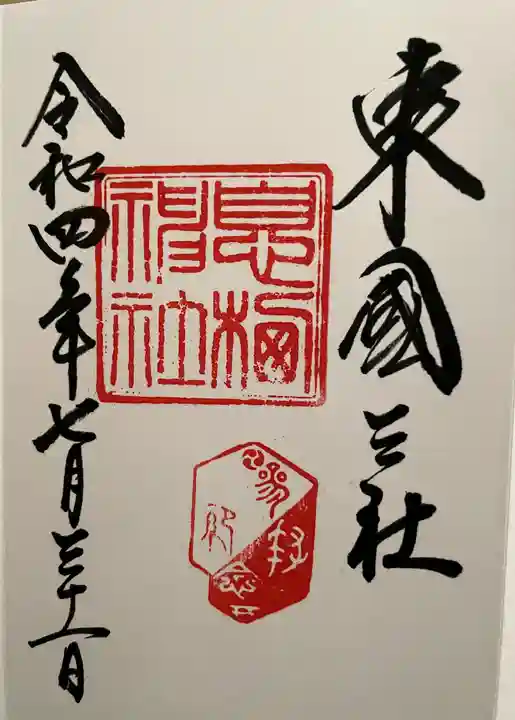 東國三社
息栖
神社
参拝
記念
令和四年七月三十一日